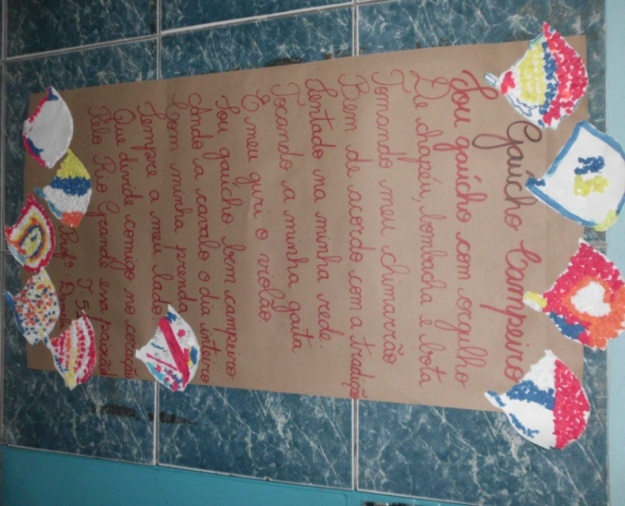 Gaúcho Campeiro
Sou gaúcho com orgulho
De chapéu, bombacha e bota
Tomando meu chimarrão
Bem de acordo com a tradição
Sentado na minha rede
Tocando a minha gaita
E meu guri o violão.
Sou gaúcho bem campeiro
Ando a cavalo o dia inteiro
Com minha prenda
Sempre a meu lado
Que divide comigo no coração
Pelo Rio Grande essa paixão